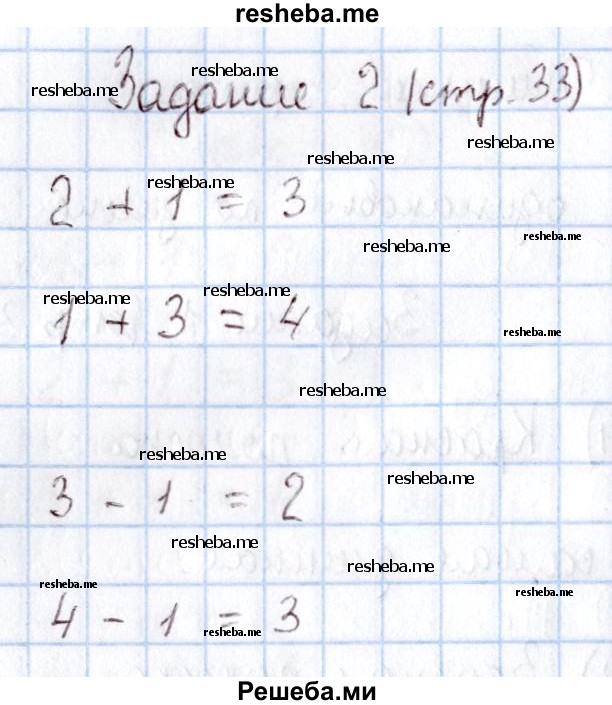 resheba.me
resheba.me
resheba.me
Задание 2 (стр. 33)
resheba.me
resheba.me
resheba.me
2 + 1 = 3
resheba.me
resheba.me
resheba.me
resheba.me
1 + 3 = 4
resheba.me
resheba.me
resheba.me
resheba.me
3 - 1 = 2
resheba.me
resheba.me
resheba.me
resheba.me
4 - 1 = 3
resheba.me
Решеба.ми